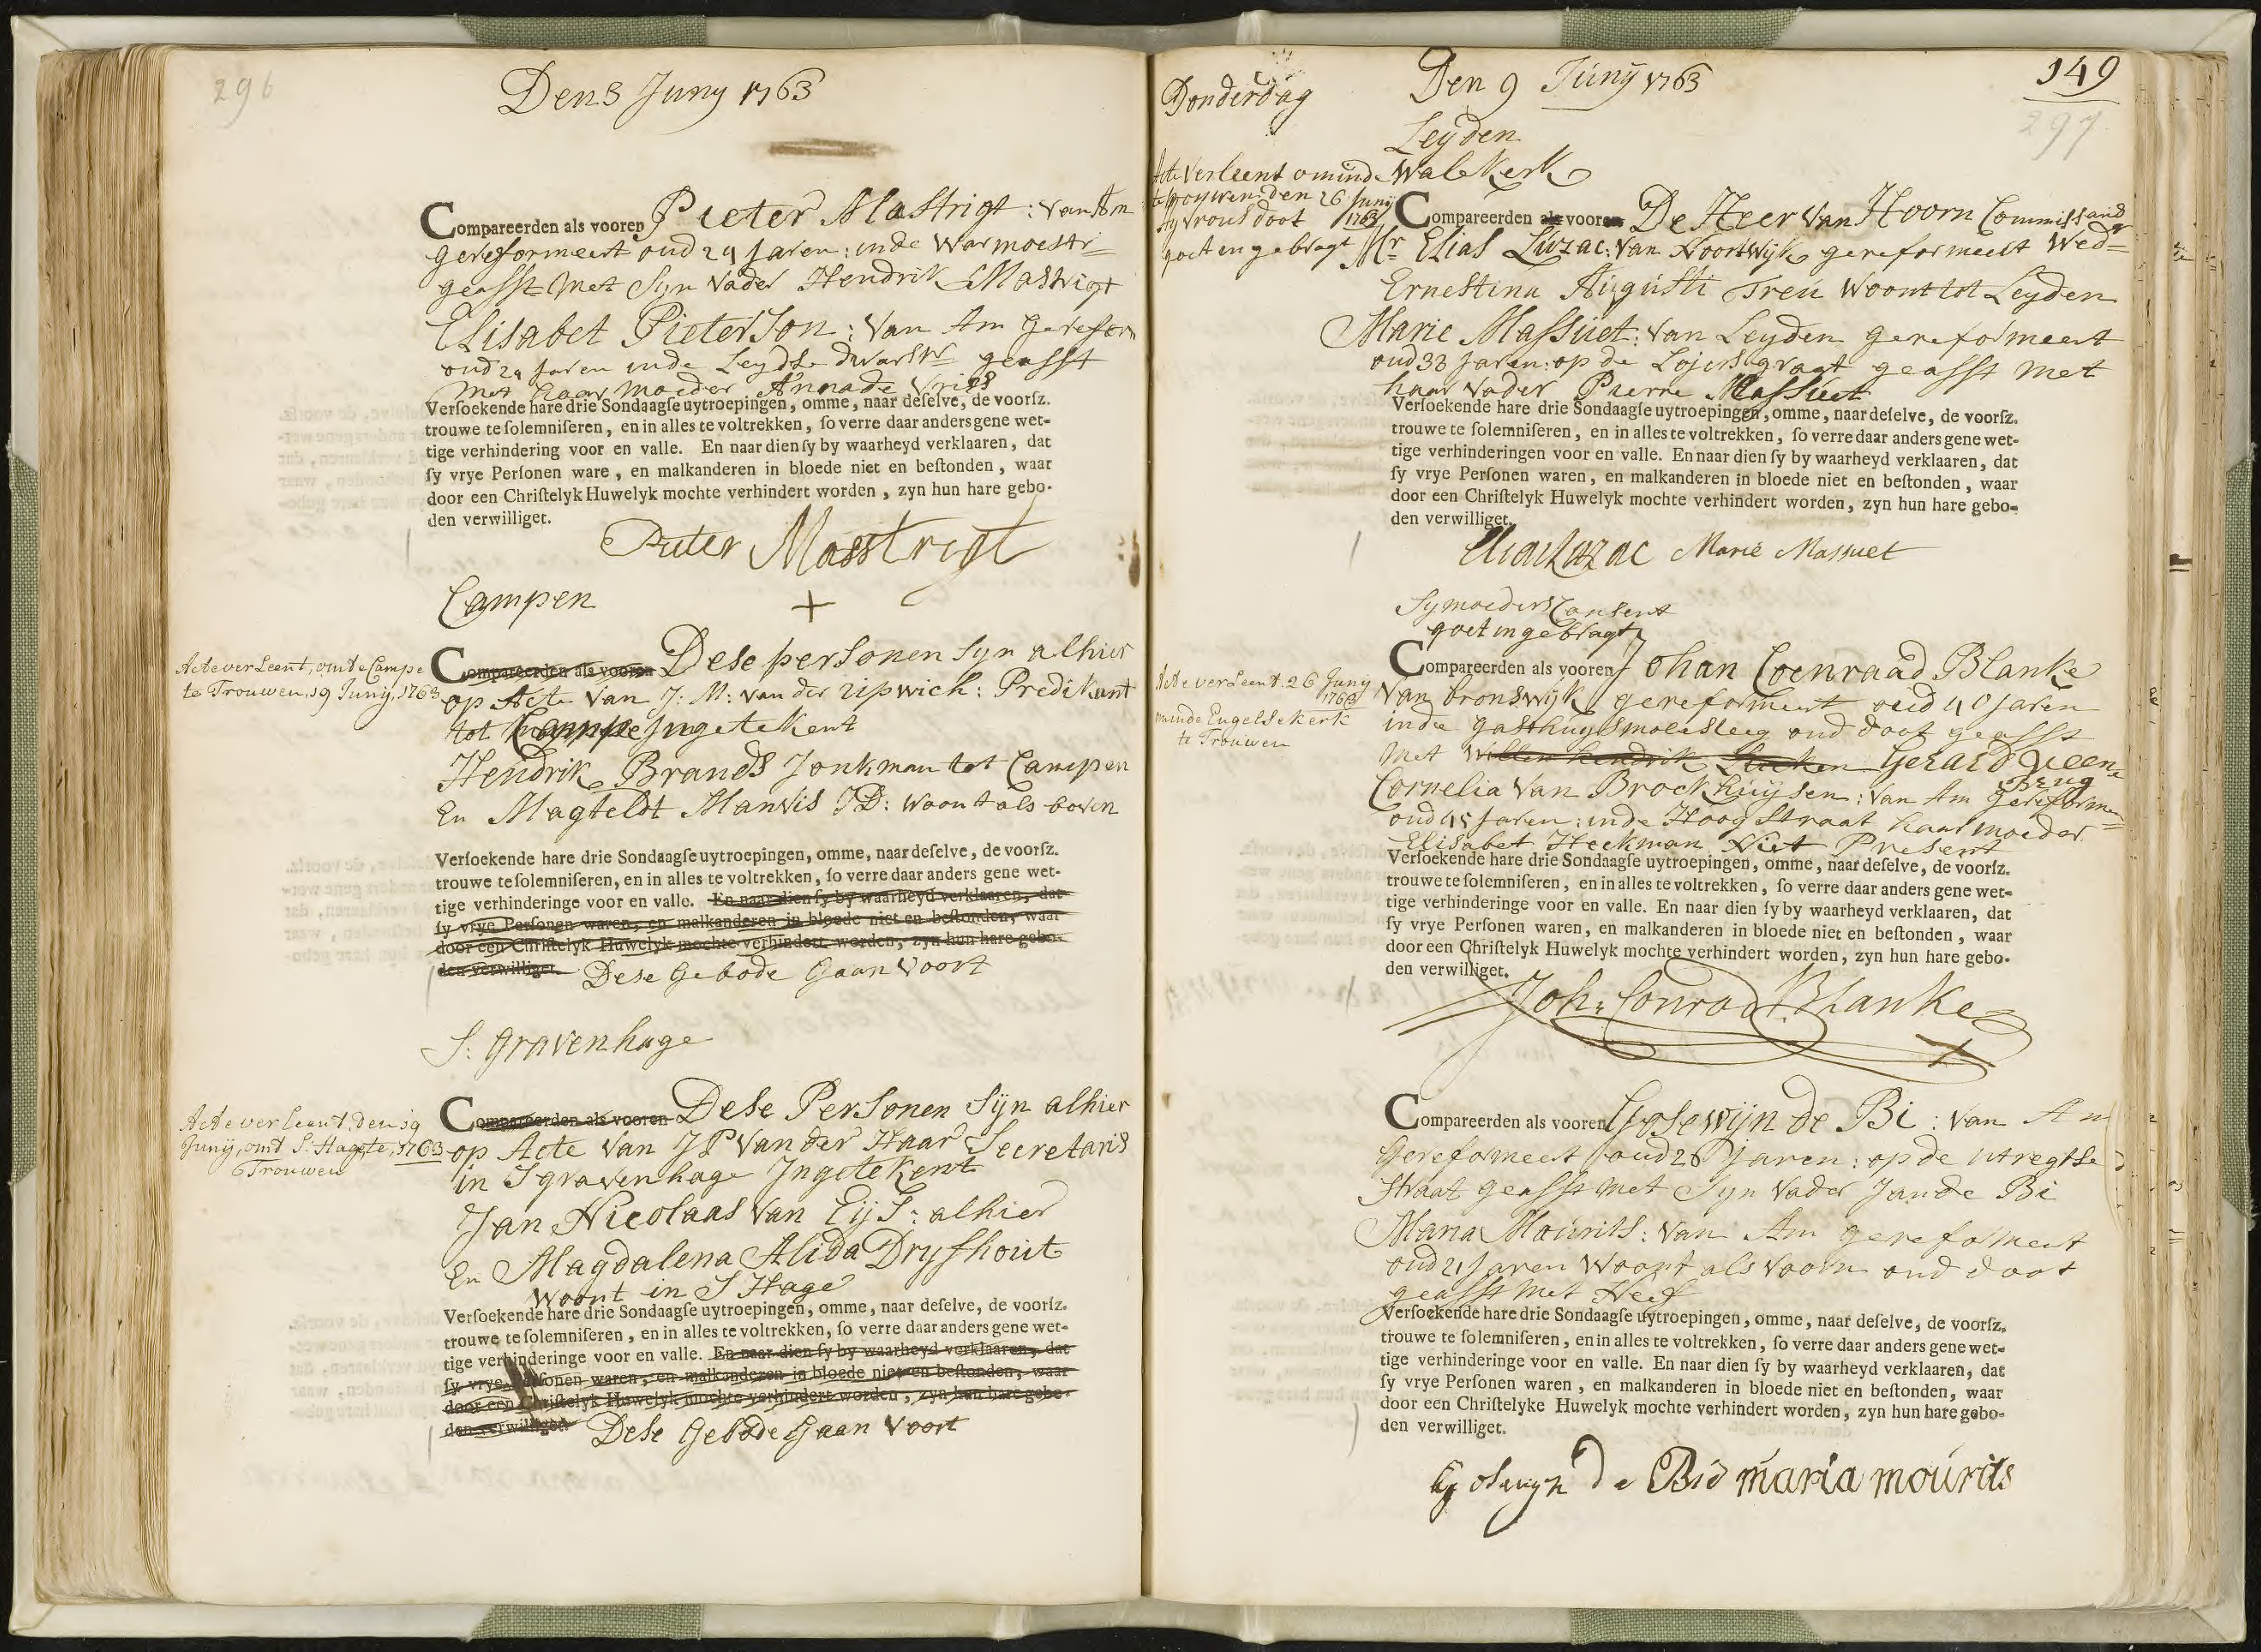 296
Den 3 Juny 1763
Compareerden als vooren Pieter Mastrigt: van Am
gereformeert oud 29 Jaren: inde Warmoestr=
geasst met Syn Vader Hendrik Mastrigt
Elisabet Pieterson: van Am gereform
oud 29 Jaren inde Leydse dwarsstr geasst
met haar moeder Anna de Vries
Verſoekende hare drie Sondaagſe uytroepingen, omme, naar deſelve, de voorſz.
trouwe te ſolemniſeren, en in alles te voltrekken, ſo verre daar anders gene wet-
tige verhindering voor en valle. En naar dien ſy by waarheyd verklaaren, dat
ſy vrye Perſonen ware, en malkanderen in bloede niet en beſtonden, waar
door een Chriſtelyk Huwelyk mochte verhindert worden, zyn hun hare gebo-
den verwilliget.
Pieter Masstrigt
Campen +
Acte verleent, om te Campe
te Trouwen, 19 Junij, 1763
Compareerden als vooren Dese personen syn alhier
op Acte van J: M: van der Zipwich: Predikant
tot Campe Ingetekent
Hendrik Brands Jonkman tot Campen
En Magteldt Manvis JD: woont als boven
Verſoekende hare drie Sondaagſe uytroepingen, omme, naar deſelve, de voorſz.
trouwe te ſolemniſeren, en in alles te voltrekken, ſo verre daar anders gene wet-
tige verhinderinge voor en valle. En naar dien ſy by waarheyd verklaaren, dat
ſy vrye Perſonen waren, en malkanderen in bloede niet en beſtonden, waar
door een Chriſtelyk Huwelyk mochte verhindert worden, zyn hun hare gebo-
den verwilliget. Dese Gebode Gaan Voort
S: Gravenhage
Acte verleent, den 19
Junij, omt S: Hage te, 1763
Trouwen
Compareerden als vooren Dese Personen Sijn alhier
op Acte van J P Van der Haar Secretaris
in S gravenhage Ingetekent
Jan Nicolaas van Eijs: alhier
En Magdalena Alida Dryfhout
Woont in S Hage
Verſoekende hare drie Sondaagſe uytroepingen, omme, naar deſelve, de voorſz.
trouwe te ſolemniſeren, en in alles te voltrekken, ſo verre daar anders gene wet-
tige verhinderinge voor en valle. En naar dien ſy by waarheyd verklaaren, dat
ſy vrye Perſonen waren, en malkanderen in bloede niet en beſtonden, waar
door een Chriſtelyk Huwelyk mochte verhindert worden, zyn hun hare gebo-
den verwilliget. Dese Gebode Gaan Voort
Donderdag Den 9 Junij 1763 149
297
Leyden
Acte Verleent om inde Wale Kerk
te trouwen den 26 Junij
1763
sy vrous doot
goet ingebragt
Compareerden als vooren De Heer Van Hoorn Commissaris
Mr Elias Luzac: van Noortwijk gereformeert Wedr
Ernestina Augusti Treu Woont tot Leyden
Marie Massuet: van Leyden gereformeert
oud 33 Jaren: op de Lojersgragt geasst met
haar vader Pierre Massuet
Verſoekende hare drie Sondaagſe uytroepingen, omme, naar deſelve, de voorſz.
trouwe te ſolemniſeren, en in alles te voltrekken, ſo verre daar anders gene wet-
tige verhinderingen voor en valle. En naar dien ſy by waarheyd verklaaren, dat
ſy vrye Perſonen waren, en malkanderen in bloede niet en beſtonden, waar
door een Chriſtelyk Huwelyk mochte verhindert worden, zyn hun hare gebo-
den verwilliget.
Elias Luzac Marie Massuet
Sy moeders Consent
goet ingebragt
Acte verleent. 26 Junij
1763
om inde Engelse kerk
te Trouwen
Compareerden als vooren Johan Coenraad Blanke
van bronswijk gereformeert oud 40 Jaren
inde gasthuysmolesteeg oud doot geasst
met Willem Hendrik Gerard Veen=
Brug
Cornelia Van Brockhuijsen: van Am gereforme
oud 45 Jaren: inde Hoogstraat haar moeder
Elisabet Heekman Niet Present
Verſoekende hare drie Sondaagſe uytroepingen, omme, naar deſelve, de voorſz.
trouwe te ſolemniſeren, en in alles te voltrekken, ſo verre daar anders gene wet-
tige verhinderinge voor en valle. En naar dien ſy by waarheyd verklaaren, dat
ſy vrye Perſonen waren, en malkanderen in bloede niet en beſtonden, waar
door een Chriſtelyk Huwelyk mochte verhindert worden, zyn hun hare gebo-
den verwilliget.
Joh: Conrad Blanke
+
Compareerden als vooren Gosewijn de Bi: van Am
Gereformeert oud 26 Jaren: op de Utregtse
Straat geasst met Syn Vader Jan de Bi
Maria Mourits: van Am gereformeert
oud 21 Jaren Woont als voorn oud doot
geasst met Neef
Verſoekende hare drie Sondaagſe uytroepingen, omme, naar deſelve, de voorſz.
trouwe te ſolemniſeren, en in alles te voltrekken, ſo verre daar anders gene wet-
tige verhinderinge voor en valle. En naar dien ſy by waarheyd verklaaren, dat
ſy vrye Perſonen waren, en malkanderen in bloede niet en beſtonden, waar
door een Chriſtelyke Huwelyk mochte verhindert worden, zyn hun hare gebo-
den verwilliget.
Goswyn de Bie maria mourits